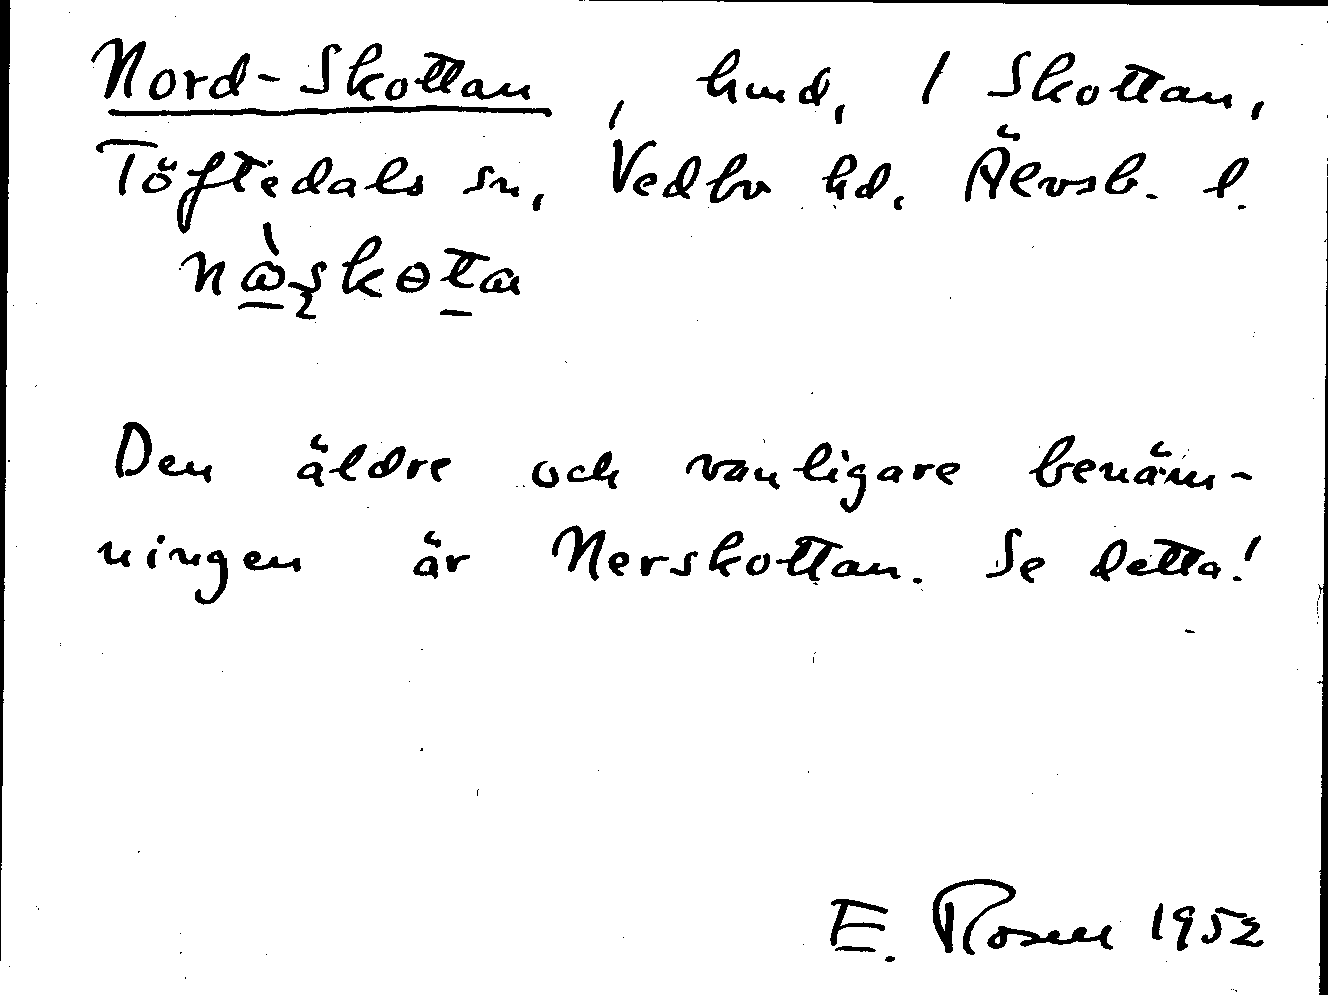 Nord-Skottan, hmd, 1 Skottan,
Töftedals sn, Vedbo hd. Älvsb. l.
Den äldre och vanligare benäm-
ningen är Nerskottan. Se detta!
E. Rosell 1952